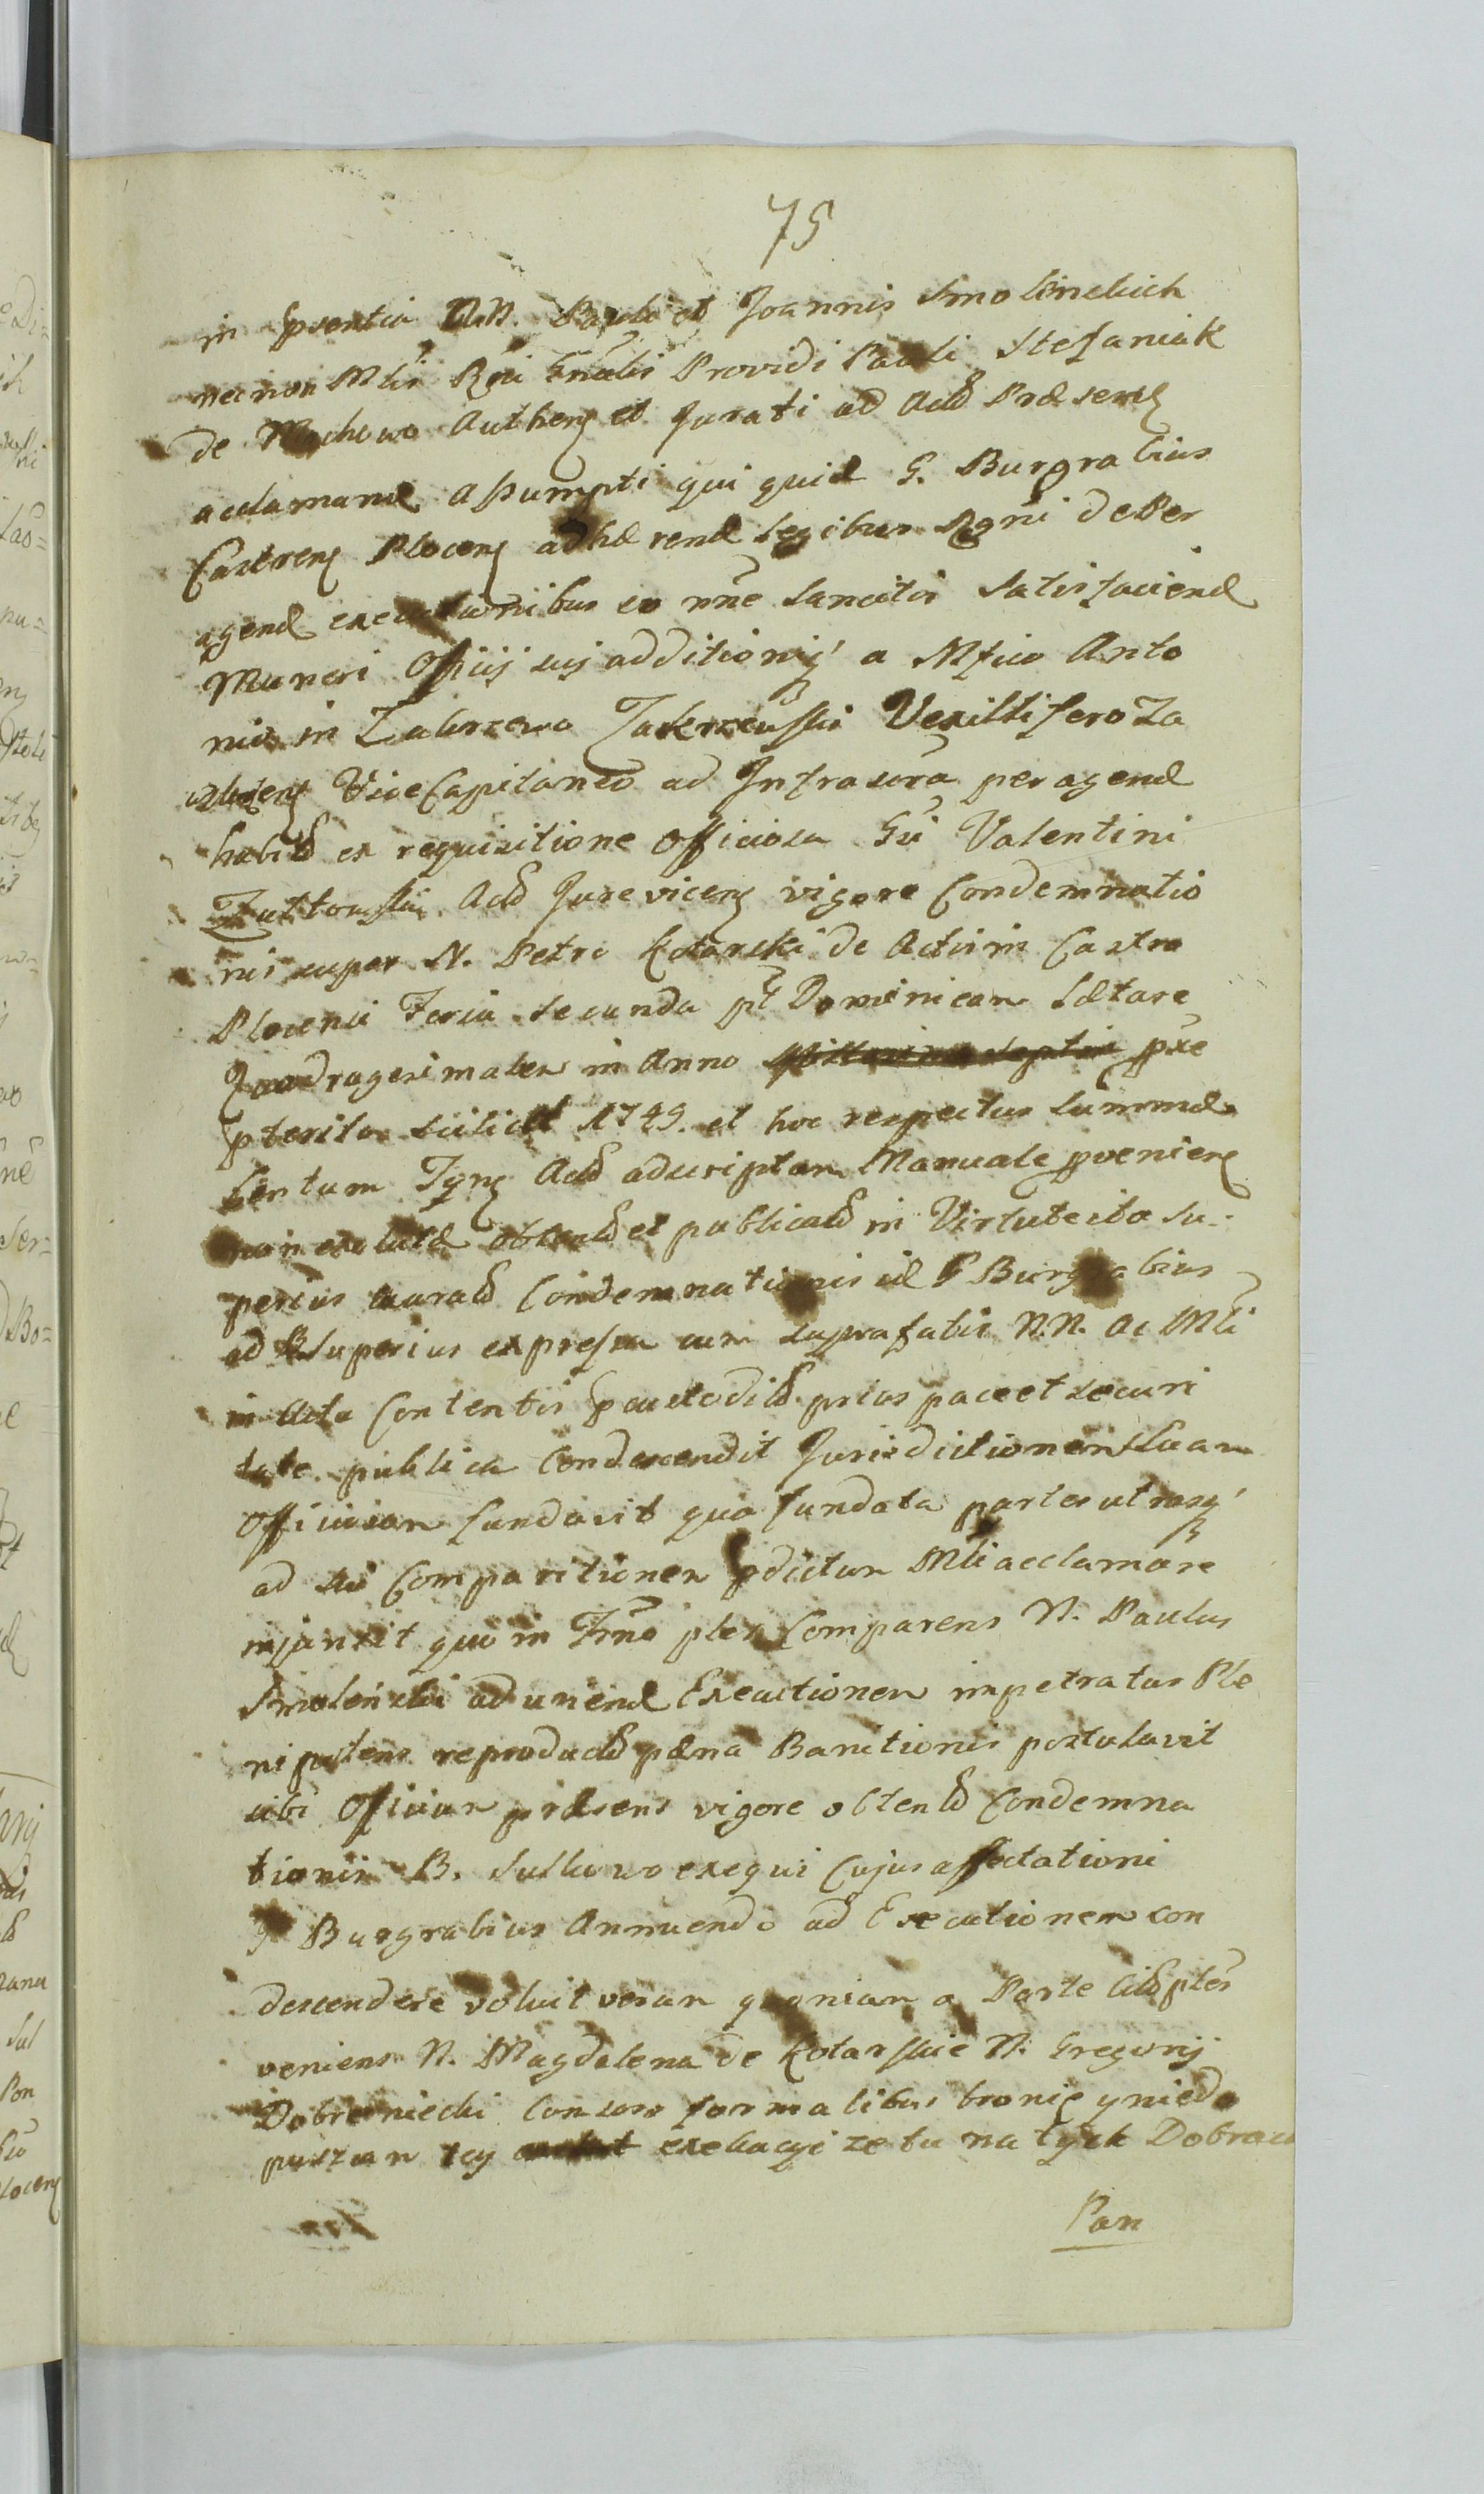 75
in Ppsentia NN. Pauli et Joannis Smolinskich
nec non Mlis Rgni Gnalis Providi Pauli Stefaniak
de Mochowo Authen et Jurati ad Act Præsens
acclamand assumpti qui quid G. Burgrabius
Castren Plocen adhærend legibus Rgni de Per
agend executionibus eo nne sancitis Satisfaciend
Muneri Officij sui additioniq a Mfico Anto
nio in Zakrzewo Zakrzewski Vexillifero Za
Vice Capitaneo ad Infrascra peragend
habit ex requisitione officiosa Gsi Valentini
Act Jurevicen vigore Condemnatio
nis super N. Petro Kotarski de Actis in Castro
Plocensi Feria secunda pt Dominicam Lætare
Quadragesimalem in Anno præ
pterito scilicet 1749. et hoc respectus Summæ
Centum Tynf Act adscriptam Manuale pvenien
non exolutæ obtent et publicat in Virtute ita Su-
perius laurat Condemnationis id G Burgrabius
ad Superius expressa cum suprafatis N.N. Ac Mli
in Acta Contentis pcustodit prius pace et securi
tate publica Condescendit Jurisdictionem Suam
Officiosam fundavit qua fundata partes utrasq
ad sui Comparitionem pdictum Mli acclamare
injunxit quo in Trno plr Comparens N. Paulus
Smolenski ad uriend Executionem impetratus Ple
nipotens reproduct pæna Banitionis postulavit
sibi Officium præsens vigore obtent Condemna
tionis B. Sulkowo exequi Cujus affectationi
G Burgrabius Annuendo ad Executionem con
descendere voluit verum quoniam a Parte Cit plr
veniens N. Magdalena de Kotarskie N. Gregorij
Dobrosniecki Consors formalibus bronię y niedo
puszam tey exekucyi ze tu na tych Dobrach
Pan